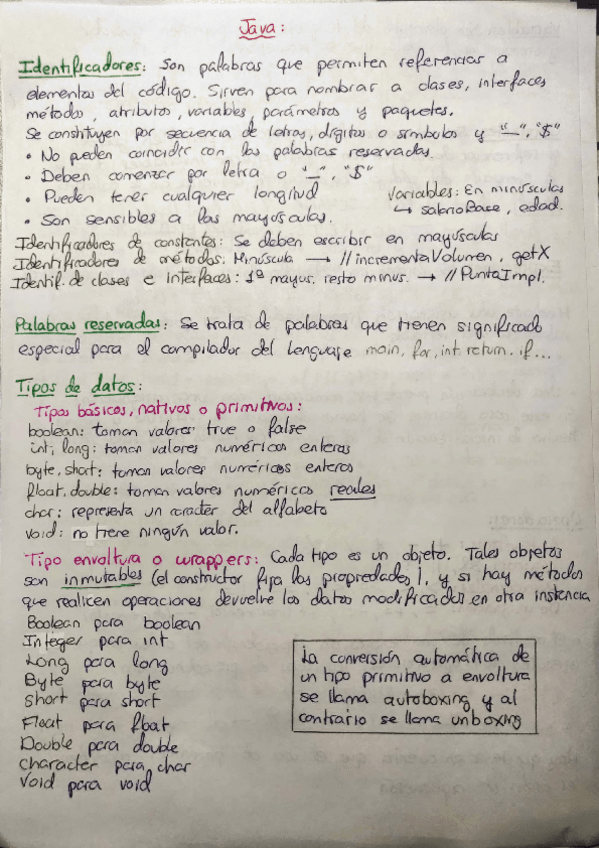 Java:
Identificadores: Son palabras que permiten referencias a
elementos del código. Sirven para nombrar a clases, interfaces
métodos, atributos, variables, parámetros y paquetes.
Se constituyen por secuencia de letras, dígitos o símbolos y "_", "$"
• No pueden coincidir con las palabras reservadas.
• Deben comenzar por letra o "_", "$"
• Pueden tener cualquier longitud
• Son sensibles a las mayúsculas.
Variables: En minúsculas
↳ salarioBase, edad.
Identificadores de constantes: Se deben escribir en mayúsculas
Identificadores de métodos: Minúscula → //incrementaVolumen, getX
Identif. de clases e interfaces: 1ª mayus. resto minus. → //PuntoImpl.
Palabras reservadas: Se trata de palabras que tienen significado
especial para el compilador del lenguaje main, for, int, return, if...
Tipos de datos:
Tipos básicos, nativos o primitivos:
boolean: toman valores true o false
int, long: toman valores numéricos enteros
byte, short: toman valores numéricos enteros
float, double: toman valores numéricos reales
char: representa un carácter del alfabeto
void: no tiene ningún valor.
Tipo envoltura o wrappers: Cada tipo es un objeto. Tales objetos
son inmutables (el constructor fija las propiedades), y si hay métodos
que realicen operaciones devuelve los datos modificados en otra instancia
Boolean para boolean
Integer para int
Long para long
Byte para byte
Short para short
Float para float
Double para double
Character para char
Void para void
La conversión automática de
un tipo primitivo a envoltura
se llama autoboxing y al
contrario se llama unboxing